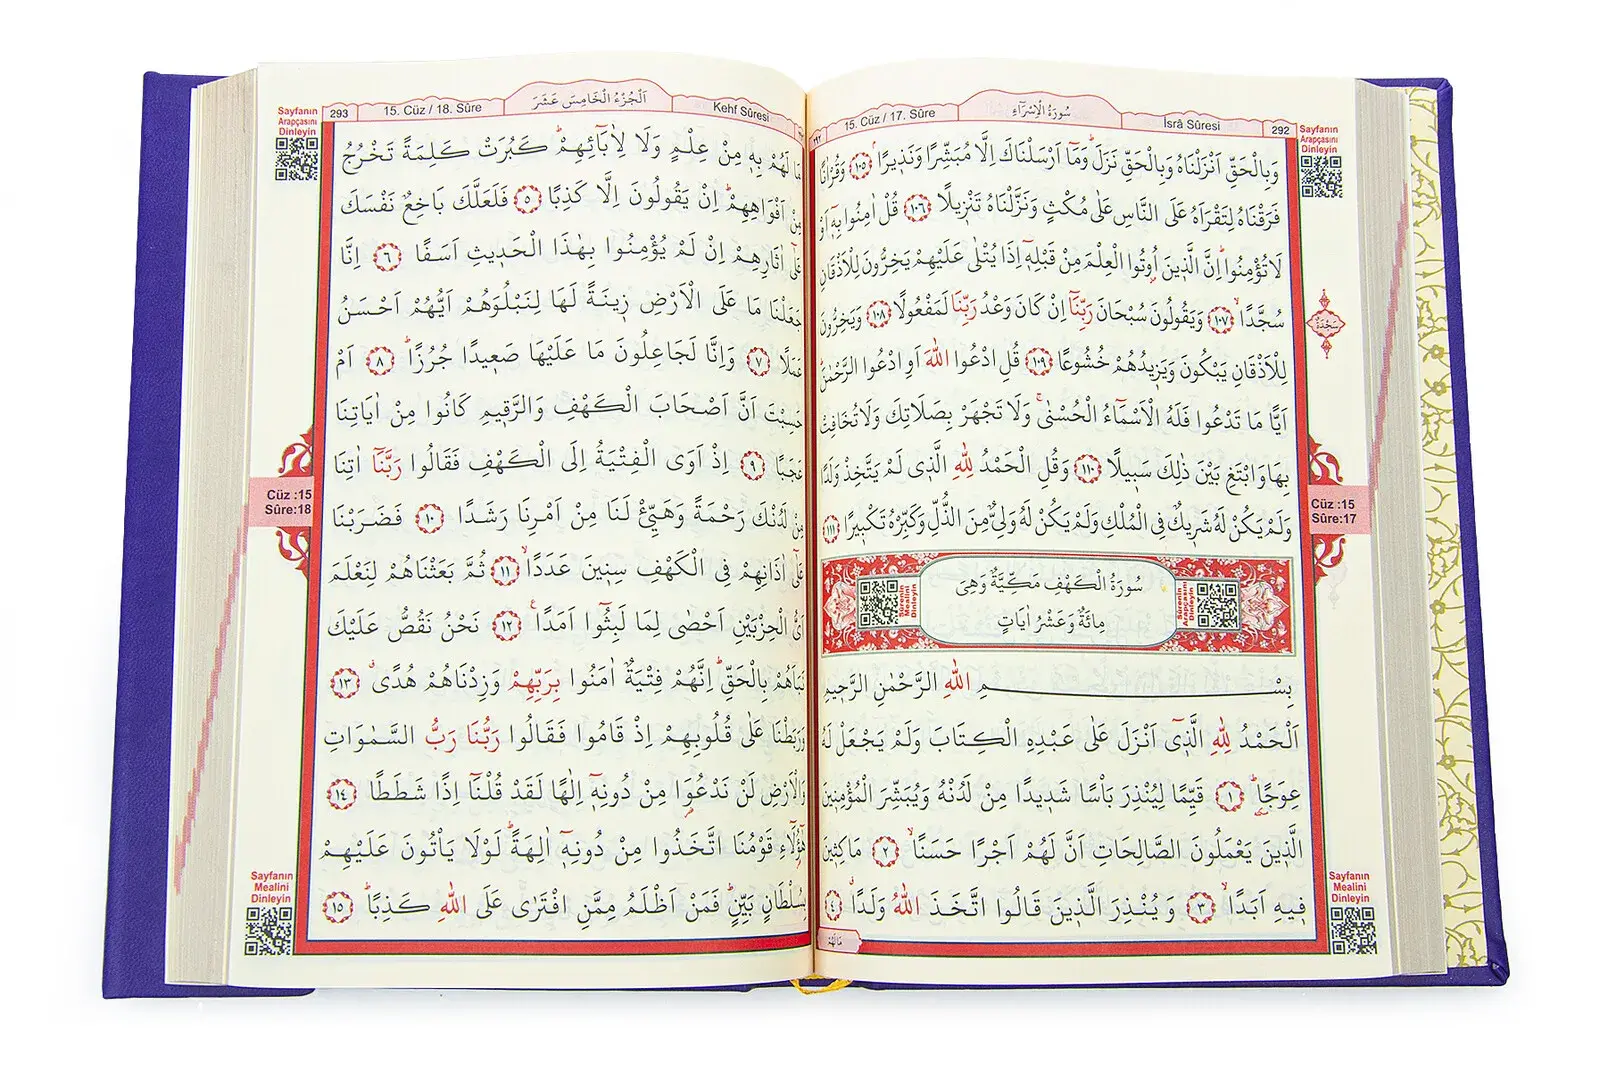 292
İsrâ Sûresi
سُورَةُ الْاِسْرَاءِ
15. Cüz / 17. Sûre
٢٩٢
Sayfanın
Arapçasını
Dinleyin
وَبِالْحَقِّ اَنْزَلْنَاهُ وَبِالْحَقِّ نَزَلَۜ وَمَٓا اَرْسَلْنَاكَ اِلَّا مُبَشِّرًا وَنَذ۪يرًاۢ ﴿١٠٥﴾ وَقُرْاٰنًا
فَرَقْنَاهُ لِتَقْرَاَهُ عَلَى النَّاسِ عَلٰى مُكْثٍ وَنَزَّلْنَاهُ تَنْز۪يلًا ﴿١٠٦﴾ قُلْ اٰمِنُوا بِه۪ٓ اَوْ
لَا تُؤْمِنُواۜ اِنَّ الَّذ۪ينَ اُو۫تُوا الْعِلْمَ مِنْ قَبْلِه۪ٓ اِذَا يُتْلٰى عَلَيْهِمْ يَخِرُّونَ لِلْاَذْقَانِ
سُجَّدًاۙ ﴿١٠٧﴾ وَيَقُولُونَ سُبْحَانَ رَبِّنَٓا اِنْ كَانَ وَعْدُ رَبِّنَا لَمَفْعُولًا ﴿١٠٨﴾ وَيَخِرُّونَ
سَجْدَةٌ
لِلْاَذْقَانِ يَبْكُونَ وَيَز۪يدُهُمْ خُشُوعًا ﴿١٠٩﴾ قُلِ ادْعُوا اللّٰهَ اَوِ ادْعُوا الرَّحْمٰنَۜ
اَيًّا مَا تَدْعُوا فَلَهُ الْاَسْمَٓاءُ الْحُسْنٰىۚ وَلَا تَجْهَرْ بِصَلَاتِكَ وَلَا تُخَافِتْ
بِهَا وَابْتَغِ بَيْنَ ذٰلِكَ سَب۪يلًا ﴿١١٠﴾ وَقُلِ الْحَمْدُ لِلّٰهِ الَّذ۪ي لَمْ يَتَّخِذْ وَلَدًا
وَلَمْ يَكُنْ لَهُ شَر۪يكٌ فِي الْمُلْكِ وَلَمْ يَكُنْ لَهُ وَلِيٌّ مِنَ الذُّلِّ وَكَبِّرْهُ تَكْب۪يرًا ﴿١١١﴾
Cüz :15
Sûre:17
Sûrenin
Arapçasını
Dinleyin
سُورَةُ الْكَهْفِ مَكِّيَّةٌ وَهِيَ
مِائَةٌ وَعَشْرُ اٰيَاتٍ
Sûrenin
Mealini
Dinleyin
بِسْمِ اللّٰهِ الرَّحْمٰنِ الرَّح۪يمِ
اَلْحَمْدُ لِلّٰهِ الَّذ۪ٓي اَنْزَلَ عَلٰى عَبْدِهِ الْكِتَابَ وَلَمْ يَجْعَلْ لَهُ
عِوَجًاۜ ﴿١﴾ قَيِّمًا لِيُنْذِرَ بَأْسًا شَد۪يدًا مِنْ لَدُنْهُ وَيُبَشِّرَ الْمُؤْمِن۪ينَ
الَّذ۪ينَ يَعْمَلُونَ الصَّالِحَاتِ اَنَّ لَهُمْ اَجْرًا حَسَنًاۙ ﴿٢﴾ مَاكِث۪ينَ
ف۪يهِ اَبَدًاۙ ﴿٣﴾ وَيُنْذِرَ الَّذ۪ينَ قَالُوا اتَّخَذَ اللّٰهُ وَلَدًاۗ ﴿٤﴾
مَا لَهُمْ
Sayfanın
Mealini
Dinleyin
Kehf Sûresi
اَلْجُزْءُ الْخَامِسَ عَشَرَ
15. Cüz / 18. Sûre
293
Sayfanın
Arapçasını
Dinleyin
مَا لَهُمْ بِه۪ مِنْ عِلْمٍ وَلَا لِاٰبَٓائِهِمْۜ كَبُرَتْ كَلِمَةً تَخْرُجُ
مِنْ اَفْوَاهِهِمْۜ اِنْ يَقُولُونَ اِلَّا كَذِبًا ﴿٥﴾ فَلَعَلَّكَ بَاخِعٌ نَفْسَكَ
عَلٰٓى اٰثَارِهِمْ اِنْ لَمْ يُؤْمِنُوا بِهٰذَا الْحَد۪يثِ اَسَفًا ﴿٦﴾ اِنَّا
جَعَلْنَا مَا عَلَى الْاَرْضِ ز۪ينَةً لَهَا لِنَبْلُوَهُمْ اَيُّهُمْ اَحْسَنُ
عَمَلًا ﴿٧﴾ وَاِنَّا لَجَاعِلُونَ مَا عَلَيْهَا صَع۪يدًا جُرُزًاۜ ﴿٨﴾ اَمْ
حَسِبْتَ اَنَّ اَصْحَابَ الْكَهْفِ وَالرَّق۪يمِ كَانُوا مِنْ اٰيَاتِنَا
عَجَبًا ﴿٩﴾ اِذْ اَوَى الْفِتْيَةُ اِلَى الْكَهْفِ فَقَالُوا رَبَّنَٓا اٰتِنَا
مِنْ لَدُنْكَ رَحْمَةً وَهَيِّئْ لَنَا مِنْ اَمْرِنَا رَشَدًا ﴿١٠﴾ فَضَرَبْنَا
Cüz :15
Sûre:18
عَلٰٓى اٰذَانِهِمْ فِي الْكَهْفِ سِن۪ينَ عَدَدًاۙ ﴿١١﴾ ثُمَّ بَعَثْنَاهُمْ لِنَعْلَمَ
اَيُّ الْحِزْبَيْنِ اَحْصٰى لِمَا لَبِثُٓوا اَمَدًا۟ ﴿١٢﴾ نَحْنُ نَقُصُّ عَلَيْكَ
نَبَاَهُمْ بِالْحَقِّۜ اِنَّهُمْ فِتْيَةٌ اٰمَنُوا بِرَبِّهِمْ وَزِدْنَاهُمْ هُدًىۗ ﴿١٣﴾
وَرَبَطْنَا عَلٰى قُلُوبِهِمْ اِذْ قَامُوا فَقَالُوا رَبُّنَا رَبُّ السَّمٰوَاتِ
وَالْاَرْضِ لَنْ نَدْعُوَ۬ا مِنْ دُونِه۪ٓ اِلٰهًا لَقَدْ قُلْنَٓا اِذًا شَطَطًا ﴿١٤﴾
هٰٓؤُ۬لَٓاءِ قَوْمُنَا اتَّخَذُوا مِنْ دُونِه۪ٓ اٰلِهَةًۜ لَوْلَا يَأْتُونَ عَلَيْهِمْ
بِسُلْطَانٍ بَيِّنٍۜ فَمَنْ اَظْلَمُ مِمَّنِ افْتَرٰى عَلَى اللّٰهِ كَذِبًاۜ ﴿١٥﴾
Sayfanın
Mealini
Dinleyin